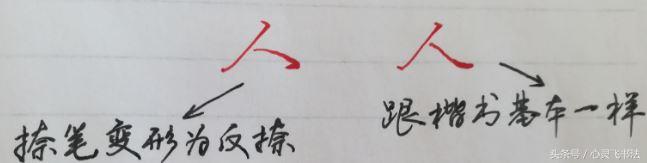 人 人
捺笔变形为反捺
跟楷书基本一样
头条号／心灵飞书法